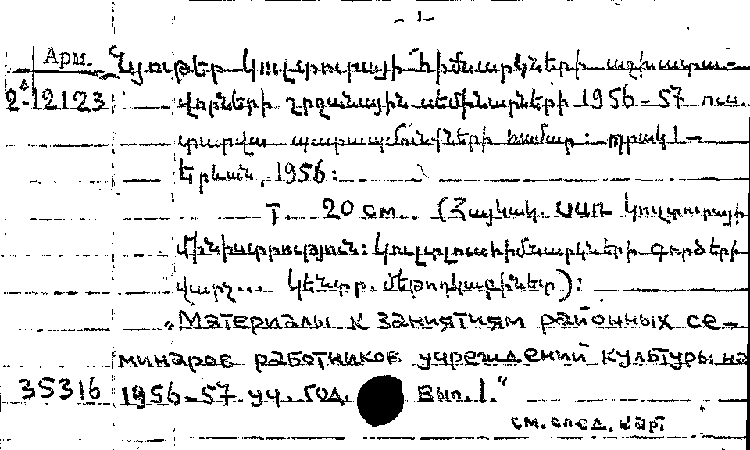 - 1 -
Арм. Նյութեր կուլտուրայի հիմնարկների աշխատա-
2-12123 վորների շրջանային սեմինարների 1956-57 ուս.
տարվա պարապմունքների համար: Պրակ 1-
Երևան, 1956:
Т. 20 см. (Հայկակ. ՍՍՌ Կուլտուրայի
մինիստրություն: Կուլտլուսհիմնարկների գործերի
վարչ... կենտր. մեթոդկաբինետ):
„Материалы к занятиям районных се-
минаров работников учреждений культуры на
35316 1956-57 уч. год. Вып. 1."
см. след. карт